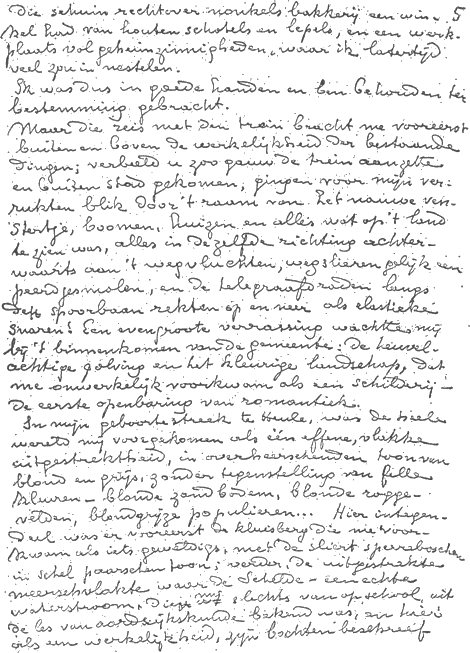 die schuin rechtover nonkels bakkerij een win- 5
kel hield van houten schotels en lepels, en een werk-
plaats vol geheimzinnigheden, waar ik latertijd
veel zou in nestelen.
Ik was dus in goede handen en ben behouden ter
bestemming gebracht.
Maar die reis met den trein bracht me vooreerst
buiten en boven de werkelijkheid der bestaande
dingen; verbeeld u zoo gauw de trein aanzette
en buiten stad gekomen, gingen voor mijn ver-
rukten blik door 't raam van het nauwe ven-
stertje, boomen, huizen en alles wat op 't land
te zien was, alles in dezelfde richting achter-
waarts aan 't wegvluchten, wegslieren gelijk een
peerdjesmolen, en de telegraafdraden langs
de spoorbaan rekten op en neer als elastieke
snaren! Een evengroote verrassing wachtte mij
bij 't binnenkomen van de gemeente: de heuvel-
achtige golving en het kleurige landschap, dat
me onwerkelijk voorkwam als een schilderij -
de eerste openbaring van romantiek.
In mijn geboortestreek te Heule, was de heele
wereld mij voorgekomen als één effene, vlakke
uitgestrektheid, in overheerschenden toon van
blond en grijs, zonder tegenstelling van felle
kleuren - blonde zandbodem, blonde rogge-
velden, blondgrijze populieren... Hier integen-
deel was er vooreerst de kluisberg die me voor-
kwam als iets geweldigs, met de sliert sparrebosschen
in schel paarschen toon; verder, de uitgestrekte
meerschvlakte waar de Schelde - een echte
waterstroom, die mij slechts van op school, uit
de les van aardrijkskunde bekend was, en hier
als een werkelijkheid, zijn bochten beschreef